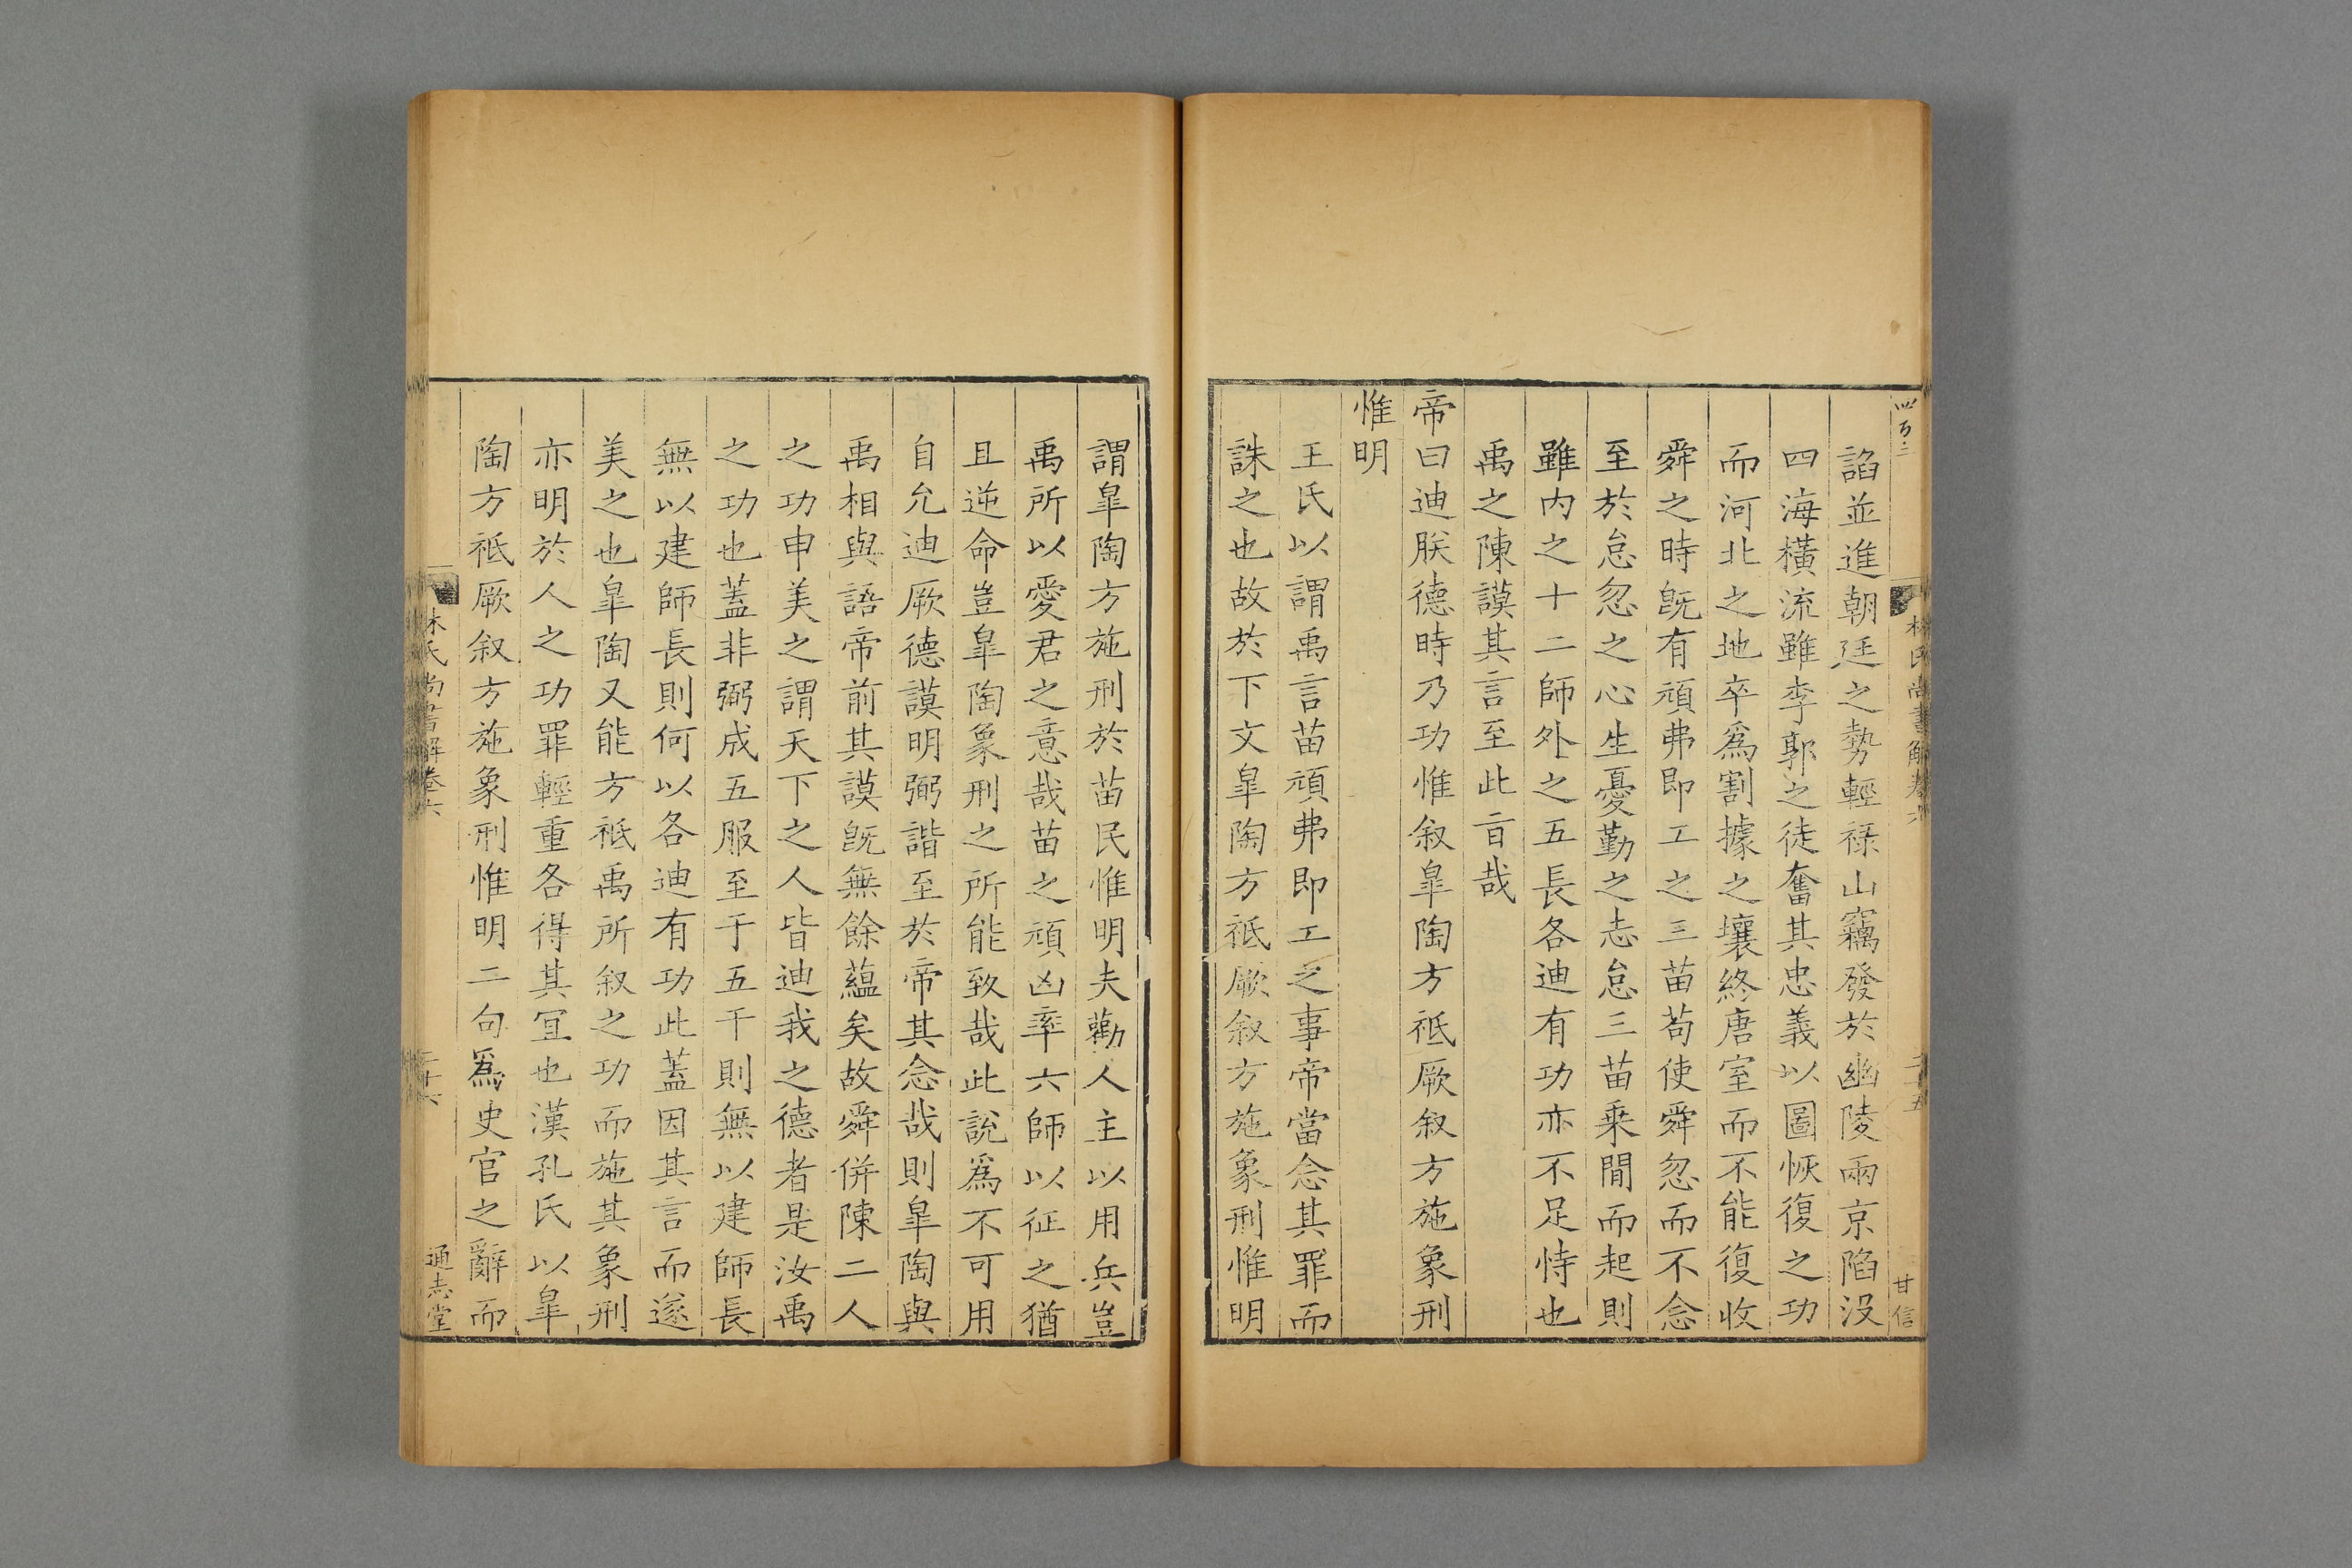 四百三
林氏尚書解卷六
二十五
甘信
諂並進朝廷之勢輕祿山竊發於幽陵兩京陷没
四海橫流雖李郭之徒奮其忠義以圖恢復之功
而河北之地卒爲割據之壤終唐室而不能復收
舜之時既有頑弗即工之三苗苟使舜忽而不念
至於怠忽之心生憂勤之志怠三苗乗間而起則
雖内之十二師外之五長各迪有功亦不足恃也
禹之陳謨其言至此旨哉
帝曰迪朕德時乃功惟叙臯陶方祗厥叙方施象刑
惟明
王氏以謂禹言苗頑弗即工之事帝當念其罪而
誅之也故於下文臯陶方祗厥叙方施象刑惟明
謂臯陶方施刑於苗民惟明夫勸人主以用兵豈
禹所以愛君之意哉苗之頑凶率六師以征之猶
且逆命豈臯陶象刑之所能致哉此說爲不可用
自允迪厥德謨明弼諧至於帝其念哉則臯陶與
禹相與語帝前其謨既無餘蘊矣故舜併陳二人
之功申美之謂天下之人皆迪我之德者是汝禹
之功也蓋非弼成五服至于五千則無以建師長
無以建師長則何以各迪有功此蓋因其言而遂
美之也臯陶又能方祗禹所叙之功而施其象刑
亦明於人之功罪輕重各得其宜也漢孔氏以臯
陶方祗厥叙方施象刑惟明二句爲史官之辭而
林氏尚書解卷六
二十六
通志堂